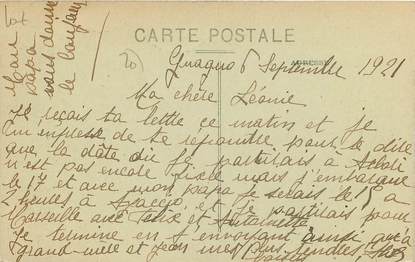 CARTE POSTALE
Guagno 6 Septembre 1921
ADRESSE
Ma chère Léonie
Je reçois ta lettre ce matin et je
m'empresse de te répondre pour te dire
que la date où je partirais à
n'est pas encore fixée mais j'embarque
le 17 et avec mon papa je serais le 15 à
2 heures à Ajaccio, et je partirais pour
Marseille avec Félix et Antoinette
Je termine en t'envoyant ainsi qu'à
grand-mère et Jean mes plus tendres
baisers
mon
papa
vous donne
le